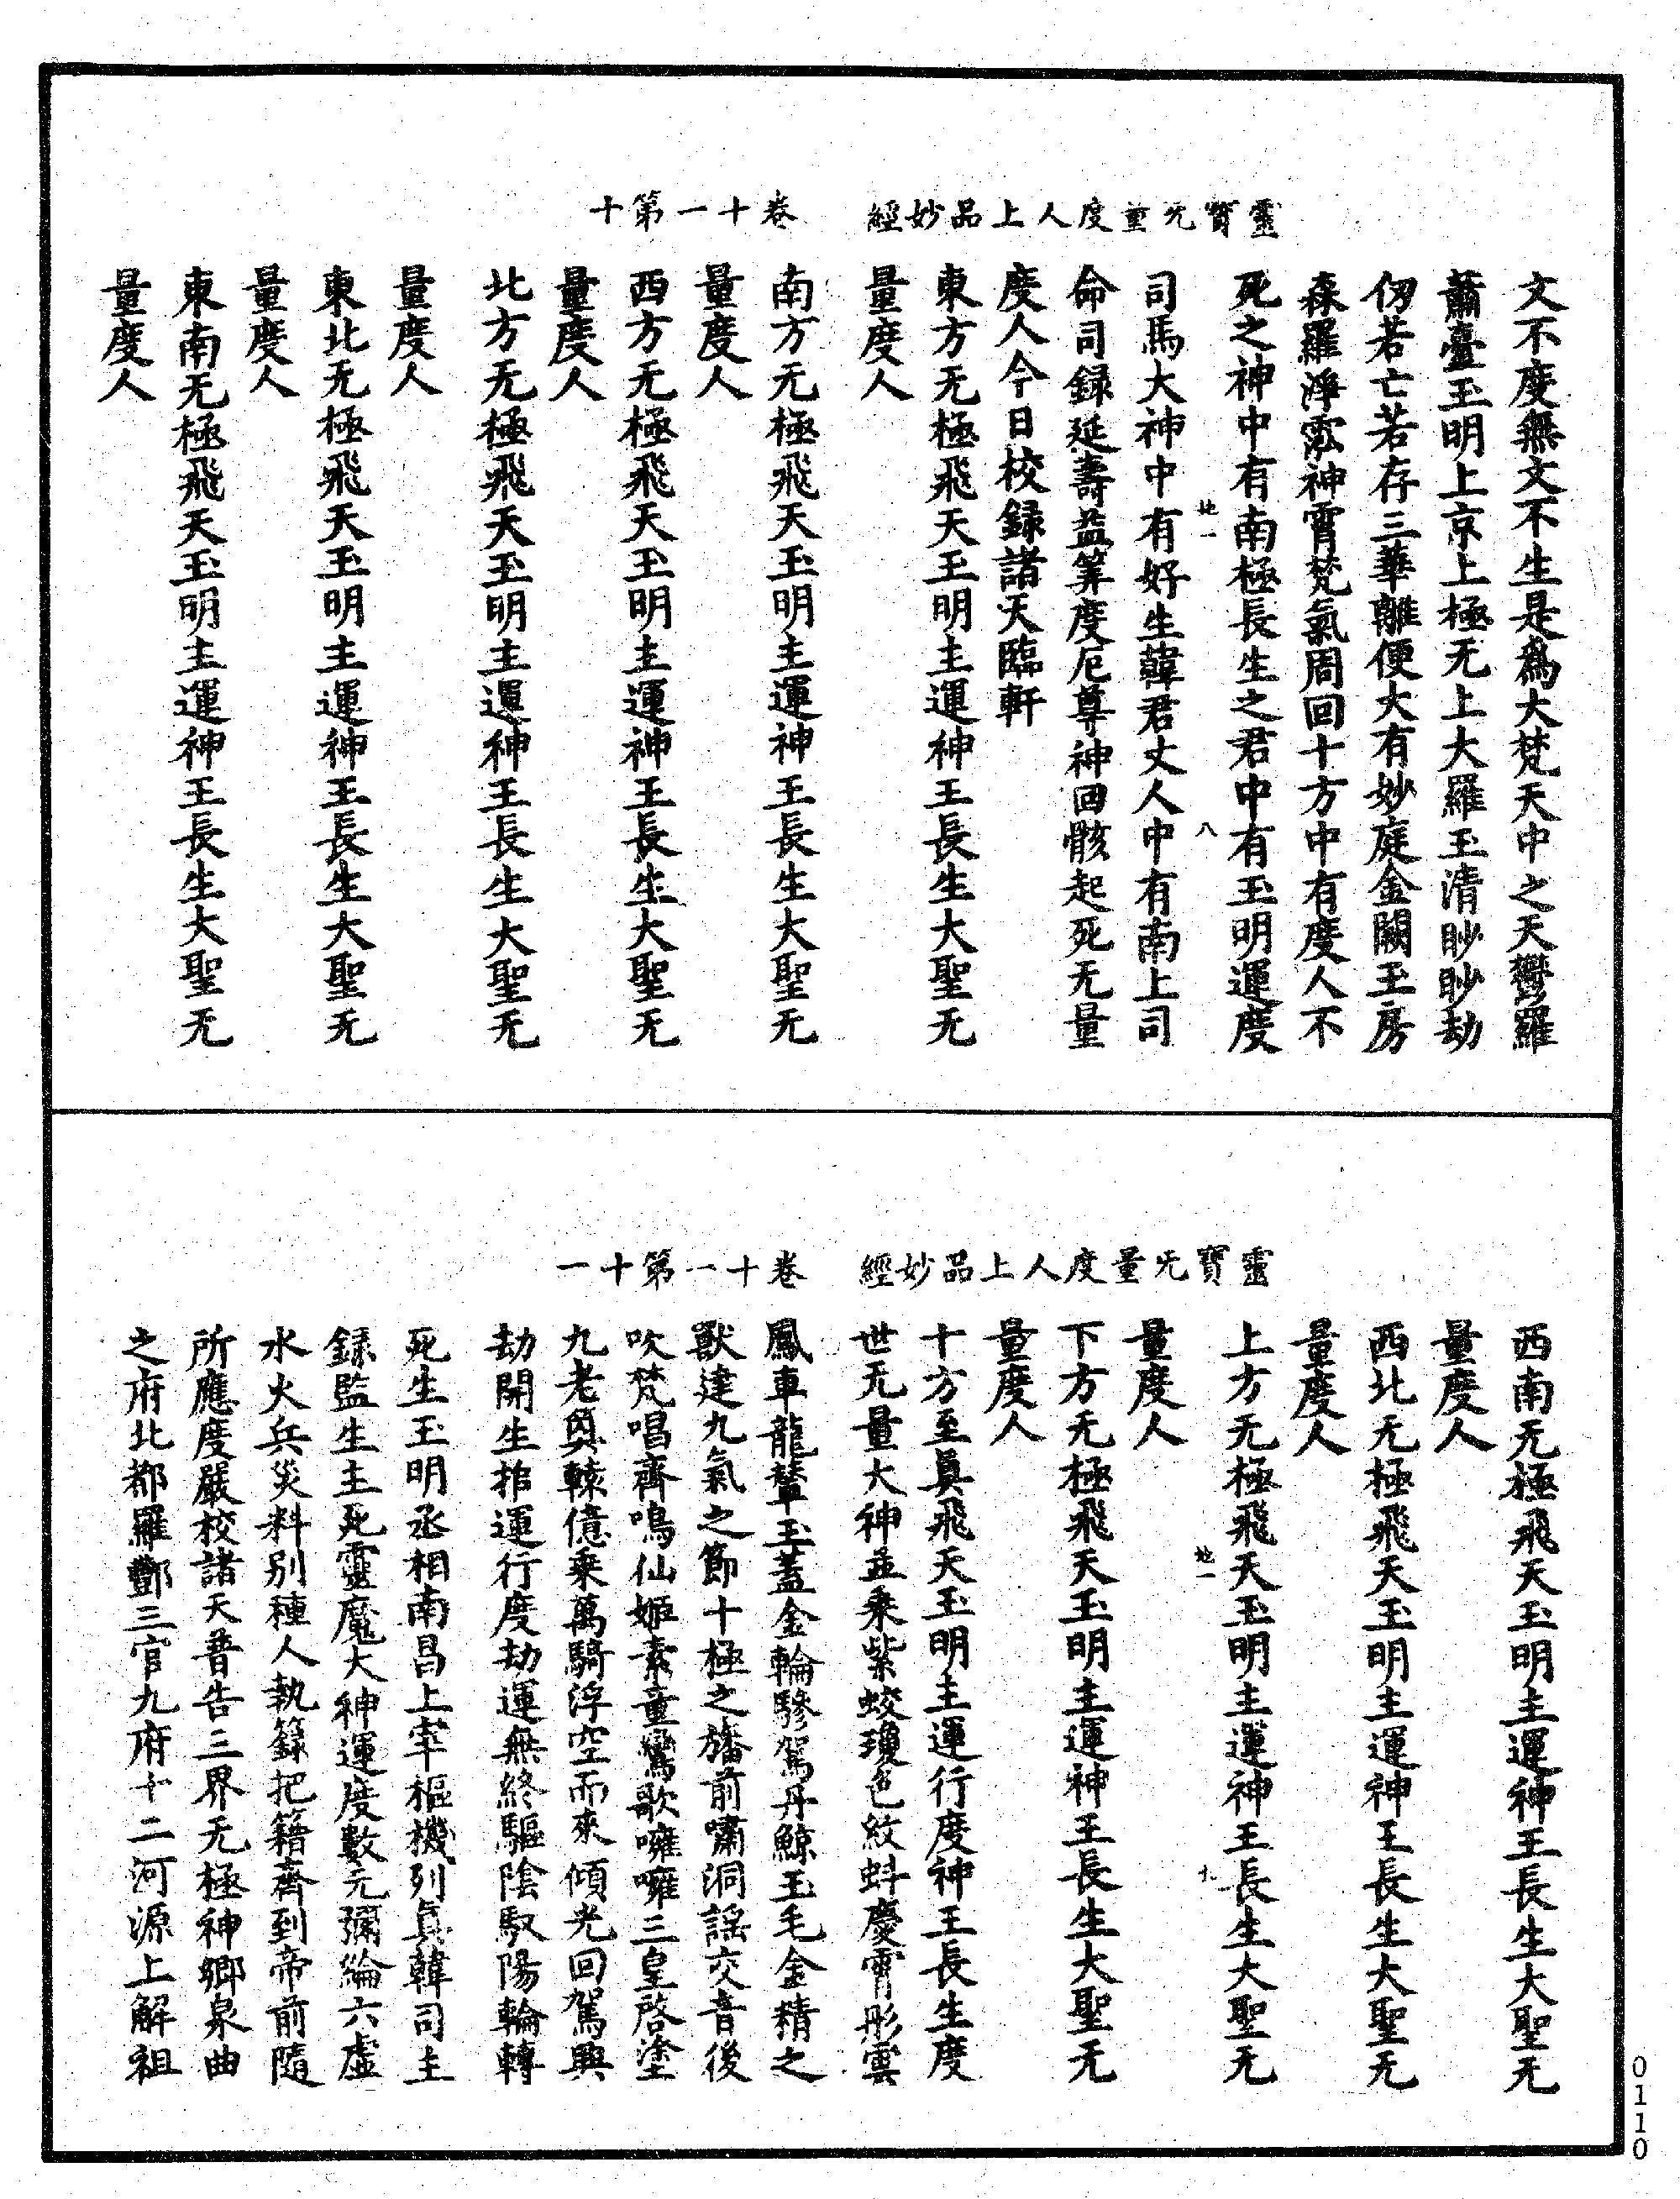 靈寶无量度人上品妙經　卷十一第十
文不度無文不生是爲大梵天中之天鬱羅
蕭臺玉明上京上極无上大羅玉清眇眇劫
仞若亡若存三華離便大有妙庭金闕玉房
森羅淨泓神霄梵氣周回十方中有度人不
死之神中有南極長生之君中有玉明運度
地一　八
司馬大神中有好生韓君丈人中有南上司
命司録延壽益筭度厄尊神回骸起死无量
度人今日校録諸天臨軒
東方无極飛天玉明主運神王長生大聖无
量度人
南方无極飛天玉明主運神王長生大聖无
量度人
西方无極飛天玉明主運神王長生大聖无
量度人
北方无極飛天玉明主運神王長生大聖无
量度人
東北无極飛天玉明主運神王長生大聖无
量度人
東南无極飛天玉明主運神王長生大聖无
量度人
靈寶无量度人上品妙經　卷十一第十一
西南无極飛天玉明主運神王長生大聖无
量度人
西北无極飛天玉明主運神王長生大聖无
量度人
上方无極飛天玉明主運神王長生大聖无
地一　九
量度人
下方无極飛天玉明主運神王長生大聖无
量度人
十方至眞飛天玉明主運行度神王長生度
世无量大神並乘紫蛟瓊色紋虯慶霄彤雲
鳳車龍輦玉蓋金輪驂駕丹鯨玉毛金精之
獸建九氣之節十極之旛前嘯洞謡交音後
吹梵唱齊鳴仙姬素童鸞歌嗈嗈三皇啓塗
九老奠轅億乘萬騎浮空而來傾光回駕興
劫開生捃運行度劫運無終驅陰馭陽輪轉
死生玉明丞相南昌上宰樞機列眞韓司主
録監生主死靈魔大神運度數元彌綸六虛
水火兵災料別種人執籙把籍齊到帝前隨
所應度嚴校諸天普告三界无極神鄉泉曲
之府北都羅酆三官九府十二河源上解祖
0110